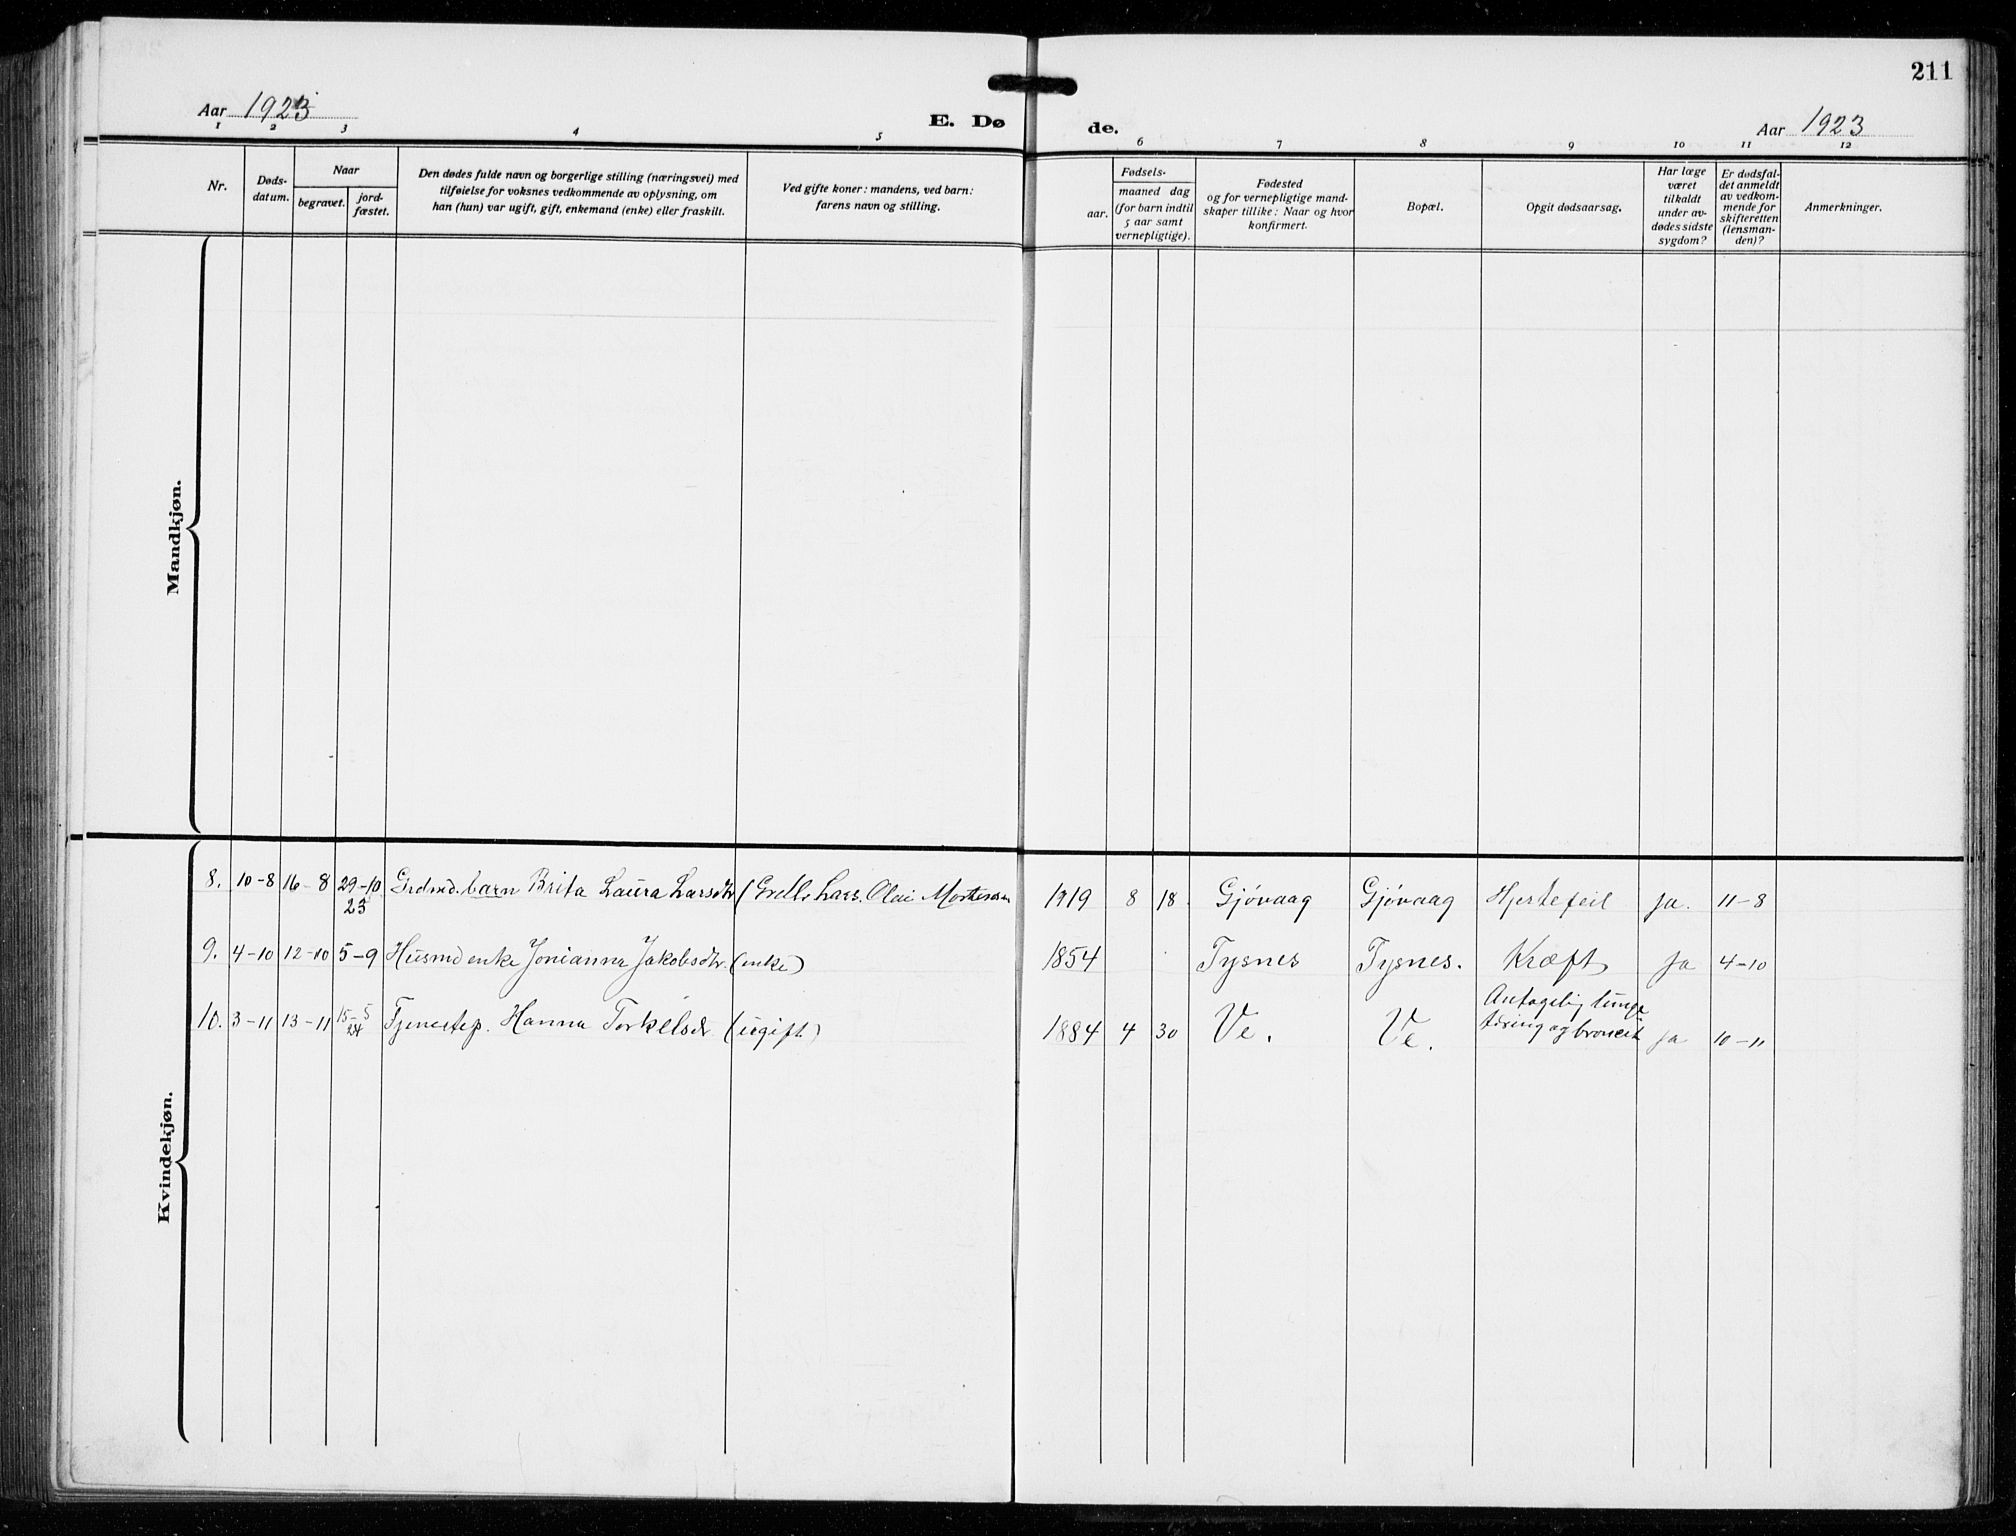 211
Aar 1923
E. Dø
de.
Aar 1923
1 2 3 4 5 6 7 8 9 10 11 12
Nr.
Døds-
datum.
Naar
begravet.
jord-
fæstet.
Den dødes fulde navn og borgerlige stilling (næringsvei) med
tilføielse for voksnes vedkommende av oplysning, om
han (hun) var ugift, gift, enkemand (enke) eller fraskilt.
Ved gifte koner: mandens, ved barn:
farens navn og stilling.
Fødsels-
aar.
maaned dag
(for barn indtil
5 aar samt
vernepligtige).
Fødested
og for vernepligtige mand-
skaper tillike: Naar og hvor
konfirmert.
Bopæl.
Opgit dødsaarsag.
Har læge
været
tilkaldt
under av-
dødes sidste
sygdom?
Er dødsfal-
det anmeldt
av vedkom-
mende for
skifteretten
(lensman-
den)?
Anmerkninger.
Mandkjøn.
Kvindekjøn.
8. 10-8 16-8 29-10 Grdmd. barn Brita Laura Larsdtr ( Lars Olai Mortensen 1919 8 18. Gjövaag Gjövaag Hjertefeil ja. 11-8
23
9. 4-10 12-10 5-9 Husmd enke Jonianna Jakobsdtr. (enke) 1854 Tysnes Tysnes. Kræft ja 4-10
10. 3-11 13-11 15-5 Tjenestep. Hanna Torkelsdr (ugift) 1884 4 30 Ve. Ve. Antagelig lunge ja 10-11
24 tæring og broncit